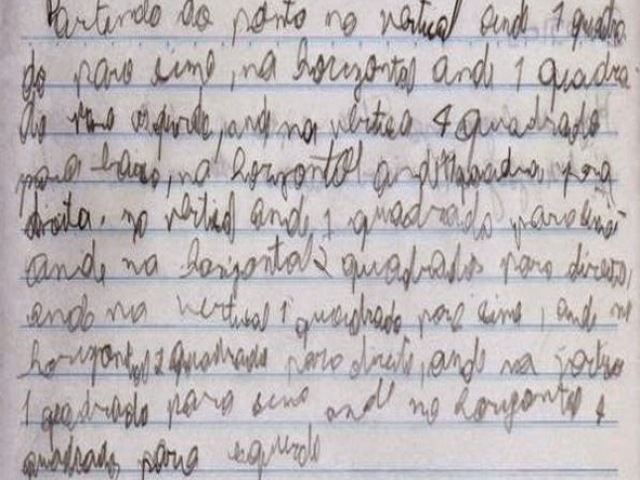 Partindo do ponto na vertical ande 1 quadra
do para cima, na horizontal ande 1 quadra
do para esquerda, ande na vertica 4 quadrado
para baixo, na horizontal ande quadra para
direita. na vertical ande 1 quadrado para cima
ande na horizontal 2 quadrados para direita,
ande na vertical 1 quadrado para cima, ande na
horizontal 2 quadrado para direita, ande na
1 quadrado para cima ande na horizontal 4
quadrados para esquerda